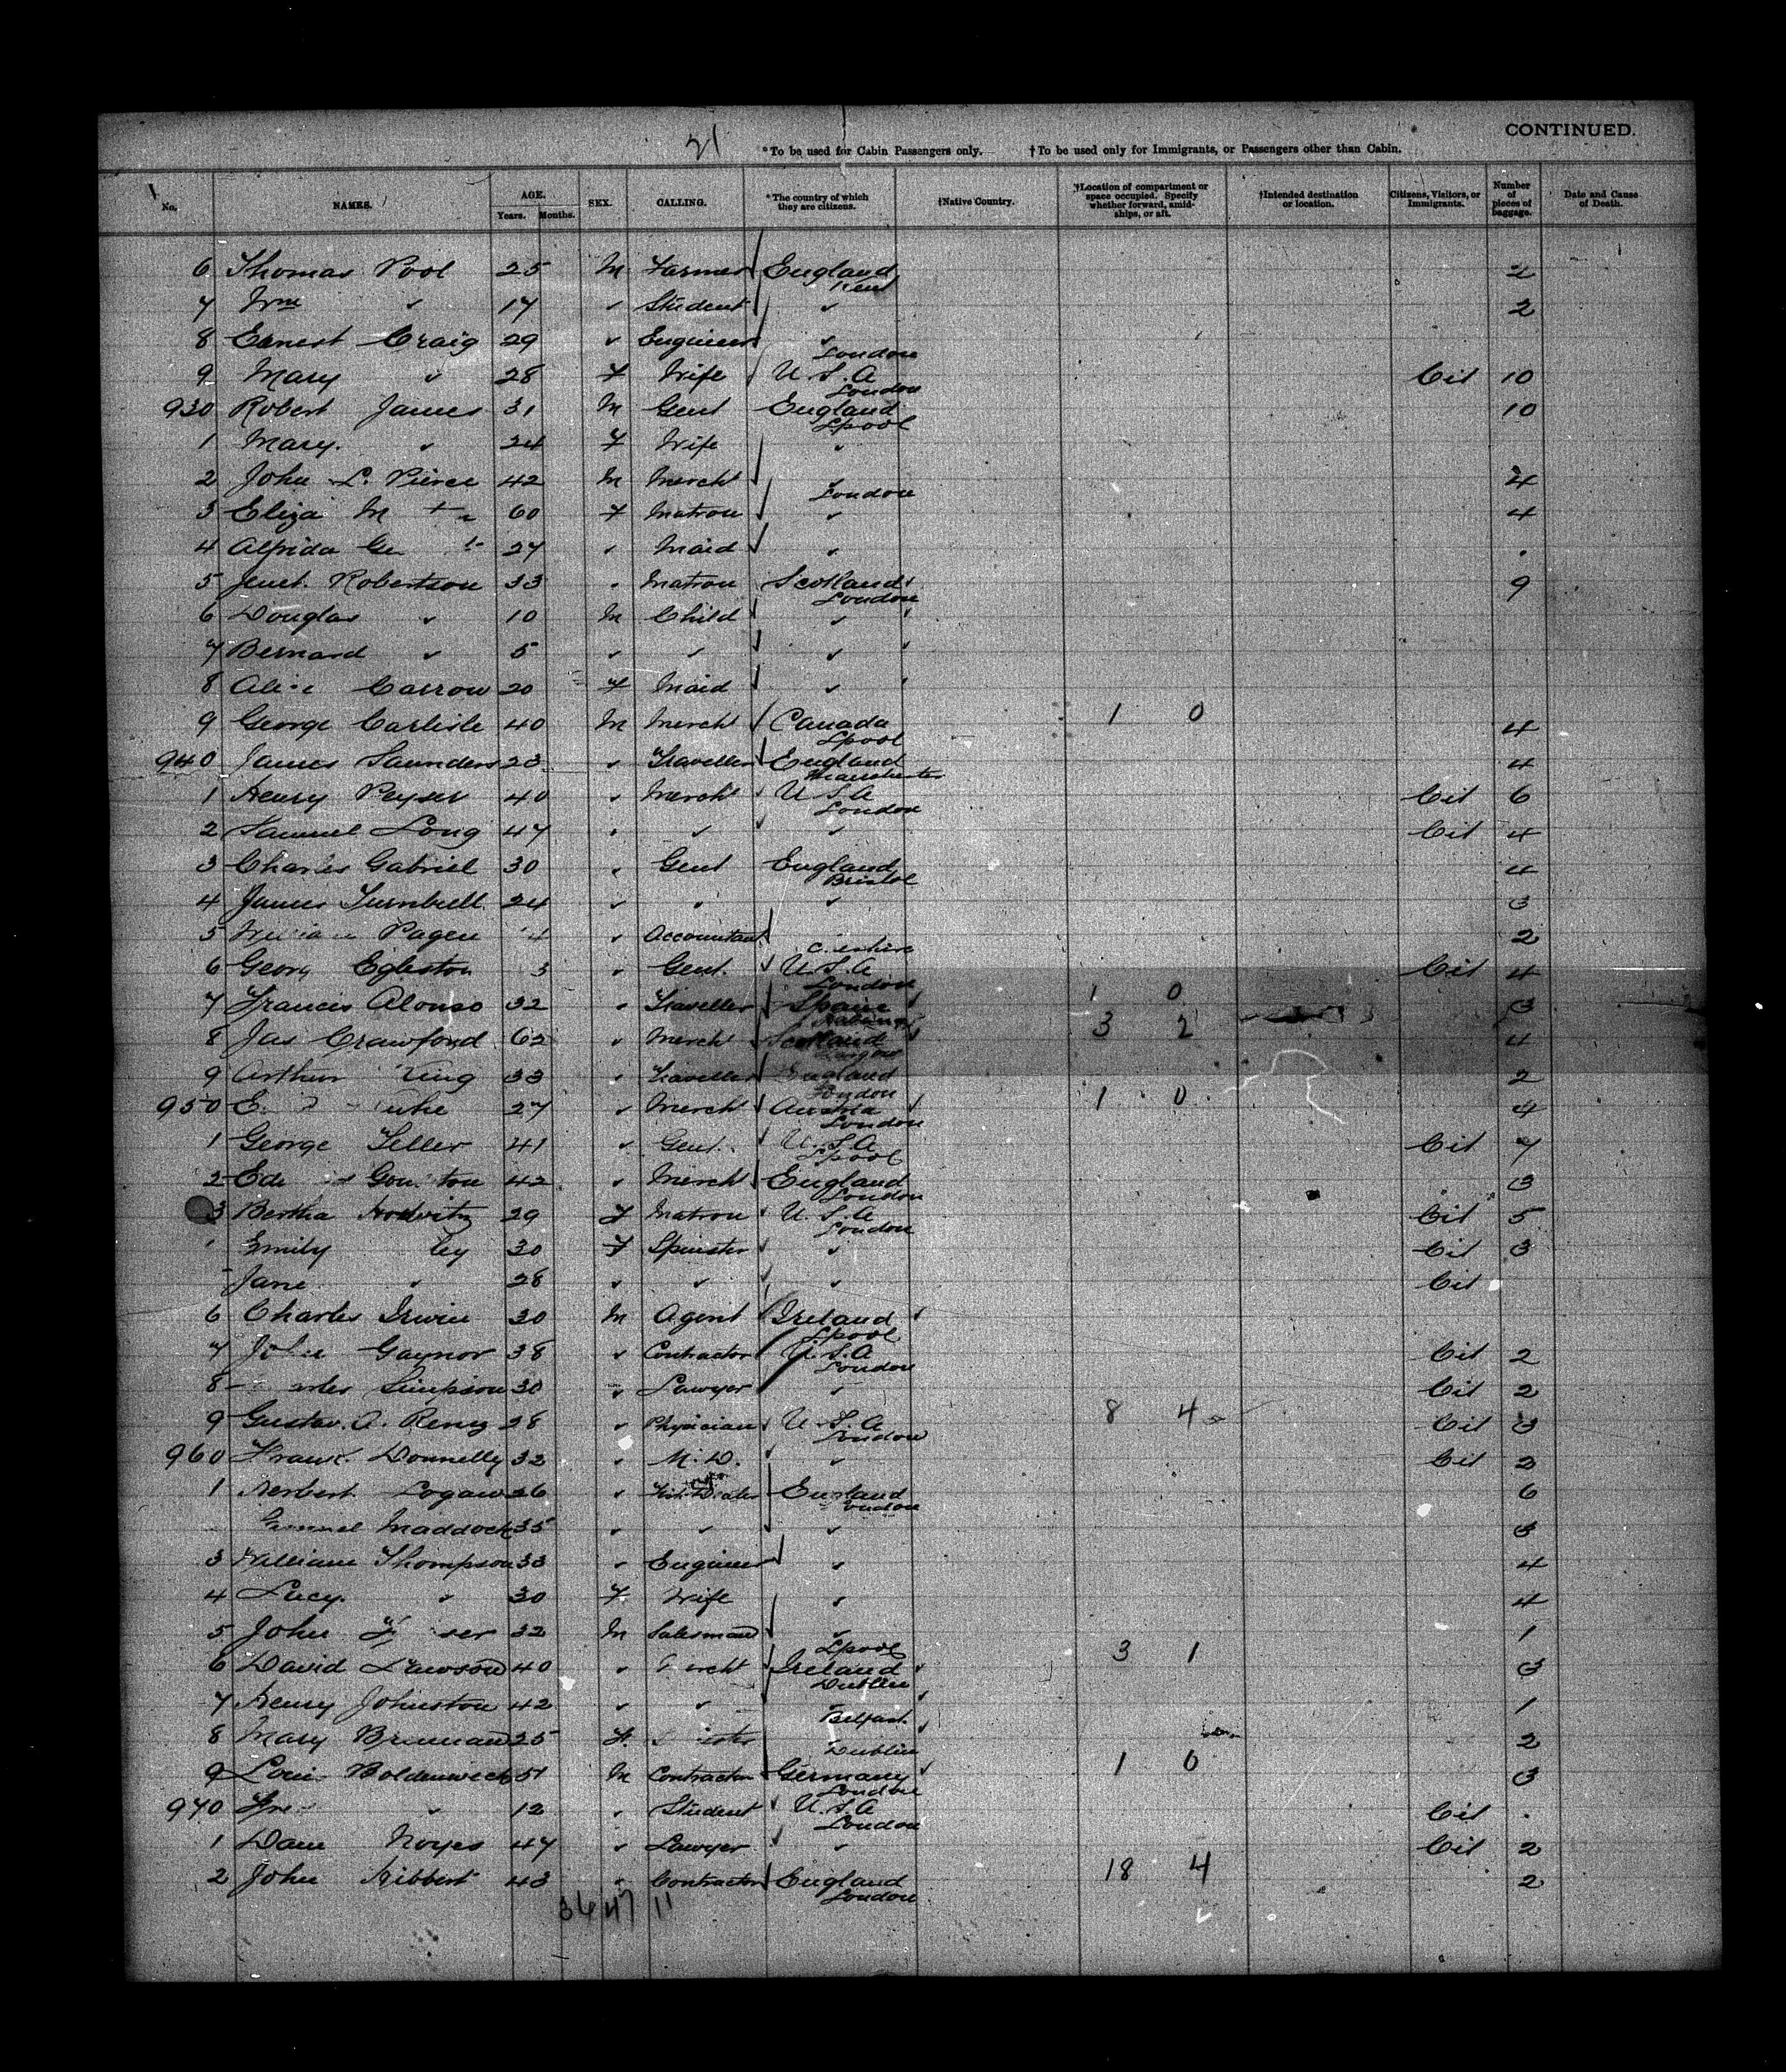 CONTINUED.
21
*To be used for Cabin Passengers only. †To be used only for Immigrants, or Passengers other than Cabin.
No. NAMES. AGE. Years. Months. SEX. CALLING. *The country of which they are citizens. †Native Country. †Location of compartment or space occupied. Specify whether forward, amidships, or aft. †Intended destination or location. Citizens, Visitors, or Immigrants. Number of pieces of baggage. Date and Cause of Death.
6 Thomas Pool 25 M Farmer England 2
Kent
7 Wm " 17 " Student " 2
8 Ernest Craig 29 " Engineer "
London
9 Mary " 28 F Wife U.S.A Cit 10
London
930 Robert James 31 M Gent England 10
Lpool
1 Mary. " 24 F Wife "
2 John L. Pierce 42 M Mercht " 4
London
3 Eliza M 60 F Matron " 4
4 Alfrida 27 " Maid "
5 Jenet. Robertson 33 " Matron Scotland 9
London
6 Douglas " 10 M Child "
7 Bernard " 5 " " "
8 Carrow 20 F Maid "
9 George Carlisle 40 M Mercht Canada 1 0 4
Lpool
940 James Saunders 23 " Traveller England 4
Manchester
1 Henry Peyser 40 " Mercht U.S.A Cit 6
London
2 Samuel Long 47 " " " Cit 4
3 Charles Gabriel 30 " Gent England 4
Bristol
4 James Turnbull 24 " " " 3
5 Pagen " Accountant 2
6 Egleston " Gent. U.S.A Cit 4
London
7 Francis Alonso 32 " Traveller Spain 1 0 3
8 Jas Crawford 62 " Mercht Scotland 3 2 4
9 Arthur 33 " Traveller England 2
London
950 27 " Mercht Austria 1 0 4
London
1 George Teller 41 " Gent. U.S.A Cit 7
Lpool
2 42 " Mercht England 3
London
3 Bertha Horwitz 29 F Matron U.S.A Cit 5
London
Emily 30 F Spinster " Cit 3
Jane " 28 " " " Cit
6 Charles Irwin 30 M Agent Ireland
Lpool
7 Gaynor 38 " Contractor U.S.A Cit 2
London
8 Simpson 30 " Lawyer " Cit 2
9 Gustav. A. Renz 28 " Physician U.S.A 8 4 Cit 3
London
960 Frank. Donnelly 32 " M.D. " Cit 2
1 Herbert Logan 26 " Dealer England 6
London
Samuel Maddock 35 " " " 3
3 William Thompson 33 " Engineer " 4
4 Lucy. " 30 F Wife " 4
5 John 32 M Salesman " 1
Lpool
6 David Lawson 40 " Mercht Ireland 3 1 3
Dublin
7 Henry Johnston 42 " " " 1
Belfast
8 Mary Brennan 25 F. 2
Dublin
9 Louis Boldenweck 51 M Contractor Germany 1 0 3
London
970 " 12 " Student U.S.A Cit
London
1 Noyes 47 " Lawyer " Cit 2
2 John Hibbert 43 " Contractor England 18 4 2
London
36 47 11